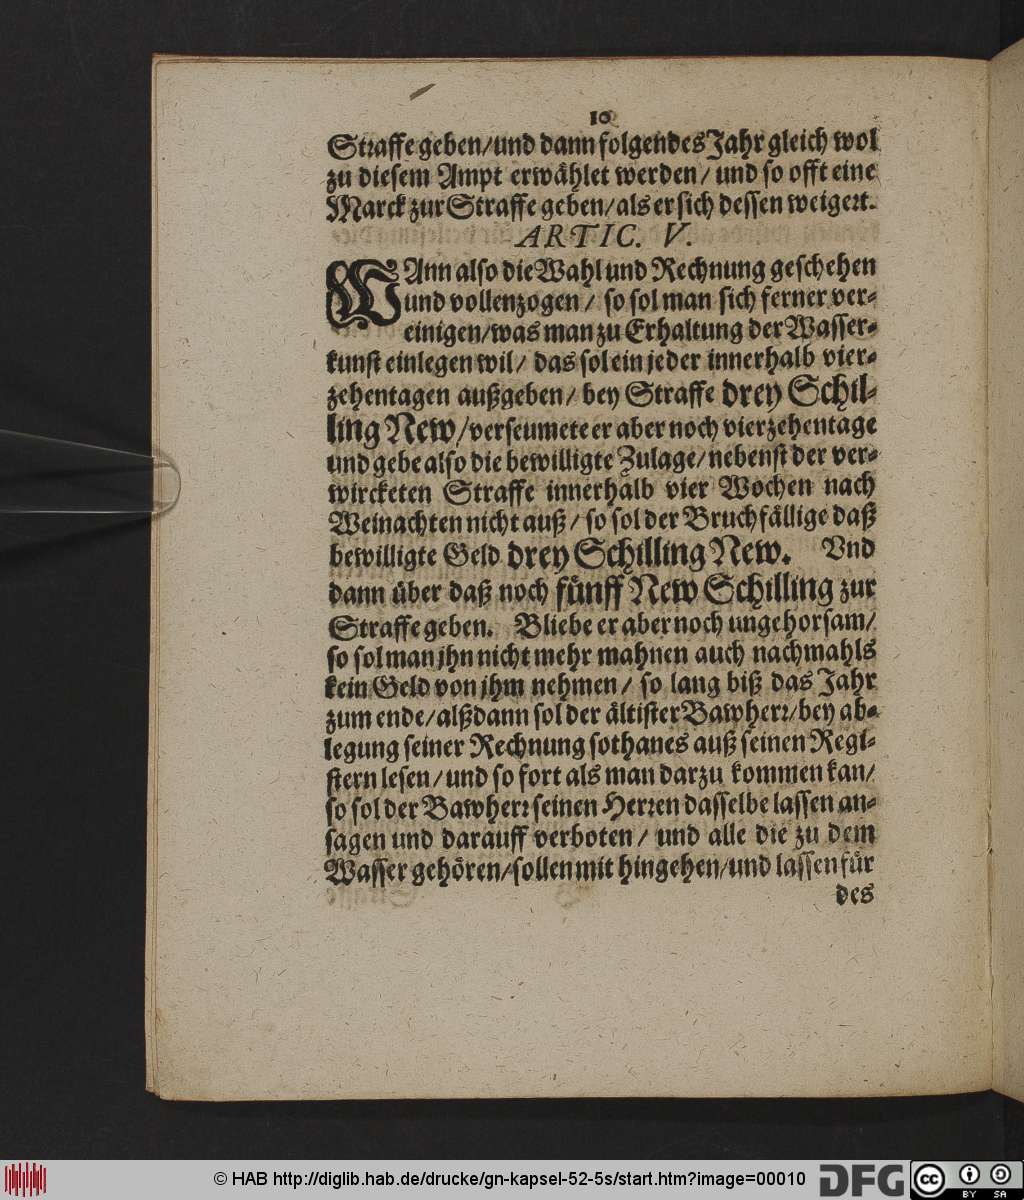 10
Straffe geben/und dann folgendes Jahr gleich wol
zu diesem Ampt erwählet werden/ und so offt eine
Marck zur Straffe geben/als er sich dessen weigert.
ARTIC. V.
WAnn also die Wahl und Rechnung geschehen
und vollenzogen/ so sol man sich ferner ver-
einigen/was man zu Erhaltung der Wasser-
kunst einlegen wil/ das sol ein jeder innerhalb vier-
zehentagen außgeben/ bey Straffe drey Schil-
ling New/verseumete er aber noch vierzehentage
und gebe also die bewilligte Zulage/nebenst der ver-
wircketen Straffe innerhalb vier Wochen nach
Weinachten nicht auß/ so sol der Bruchfällige daß
bewilligte Geld drey Schilling New. Vnd
dann über daß noch fünff New Schilling zur
Straffe geben. Bliebe er aber noch ungehorsam/
so sol man jhn nicht mehr mahnen auch nachmahls
kein Geld von jhm nehmen/ so lang biß das Jahr
zum ende/alßdann sol der ältister Bawherr/bey ab-
legung seiner Rechnung sothanes auß seinen Regi-
stern lesen/und so fort als man darzu kommen kan/
so sol der Bawherr seinen Herren dasselbe lassen an-
sagen und darauff verboten/ und alle die zu dem
Wasser gehören/sollen mit hingehen/und lassen für
des
© HAB http://diglib.hab.de/drucke/gn-kapsel-52-5s/start.htm?image=00010
DFG
cc
BY SA